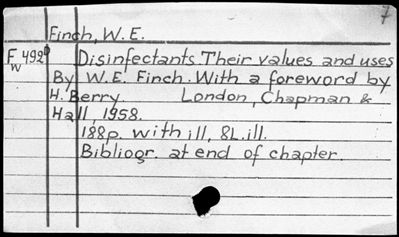 7
Finch, W.E.
Fw 492D Disinfectants. Their values and uses
By W.E. Finch. With a foreword by
H. Berry London, Chapman &
Hall, 1958.
188p. with ill, 8L.ill.
Bibliogr. at end of chapter.